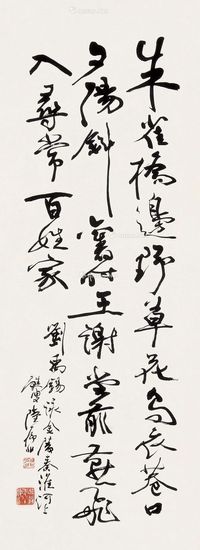 朱雀橋邊野草花烏衣巷口
夕陽斜舊時王謝堂前燕飛
入尋常百姓家
劉禹錫詠金陵秦淮河上
陸